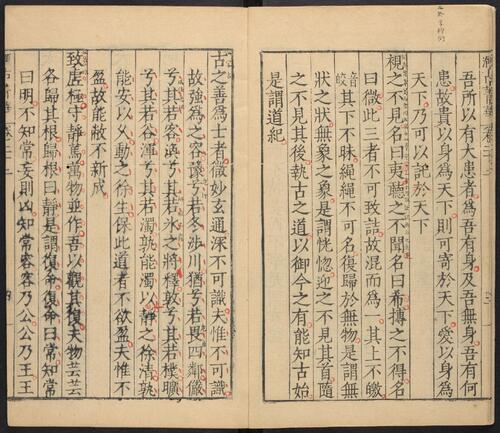 吾所以有大患者為吾有身及吾無身吾有何
患故貴以身為天下則可寄於天下愛以身為
天下乃可以託於天下
視之不見名曰夷聽之不聞名曰希搏之不得名
曰微此三者不可致詰故混而為一其上不皦
音皎其下不昧繩繩不可名復歸於無物是謂無
狀之狀無象之象是謂恍惚迎之不見其首隨
之不見其後執古之道以御今之有能知古始
是謂道紀
古之善為士者微妙玄通深不可識夫惟不可識
故強為之容豫兮若冬涉川猶兮若畏四鄰儼
兮其若客渙兮若冰之將釋敦兮其若樸曠
兮其若谷渾兮其若濁孰能濁以靜之徐清孰
能安以久動之徐生保此道者不欲盈夫惟不
盈故能敝不新成
致虛極守靜篤萬物並作吾以觀其復夫物芸芸
各歸其根歸根曰靜是謂復命復命曰常知常
曰明不知常妄則凶知常容容乃公公乃王王